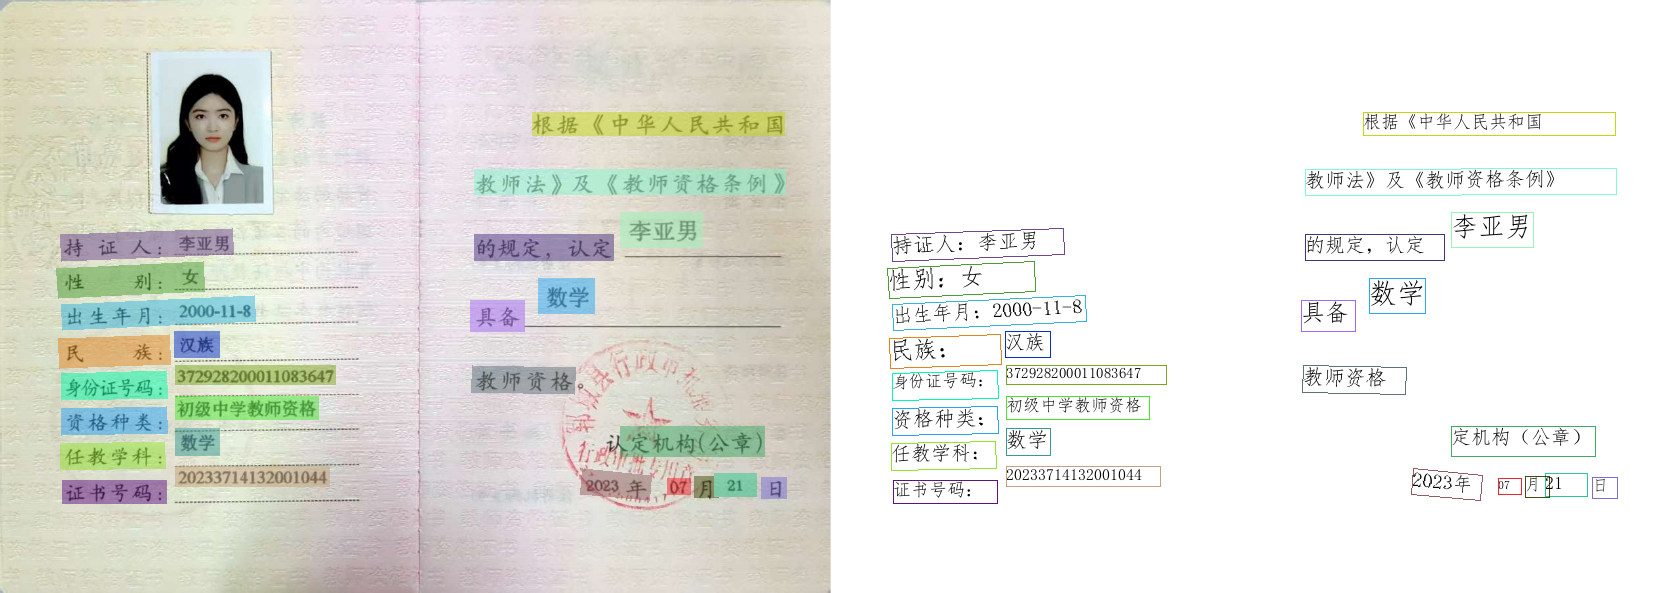 持证人：李亚男
性别：女
出生年月：2000-11-8
民族：汉族
身份证号码：372928200011083647
资格种类：初级中学教师资格
任教学科：数学
证书号码：20233714132001044
根据《中华人民共和国
教师法》及《教师资格条例》
的规定，认定 李亚男
具备 数学
教师资格。
认定机构(公章)
2023年 07月 21日
持证人：李亚男
性别：女
出生年月：2000-11-8
民族：汉族
身份证号码：372928200011083647
资格种类：初级中学教师资格
任教学科：数学
证书号码：20233714132001044
根据《中华人民共和国
教师法》及《教师资格条例》
的规定，认定 李亚男
具备 数学
教师资格
定机构（公章）
2023年 07 月 21 日